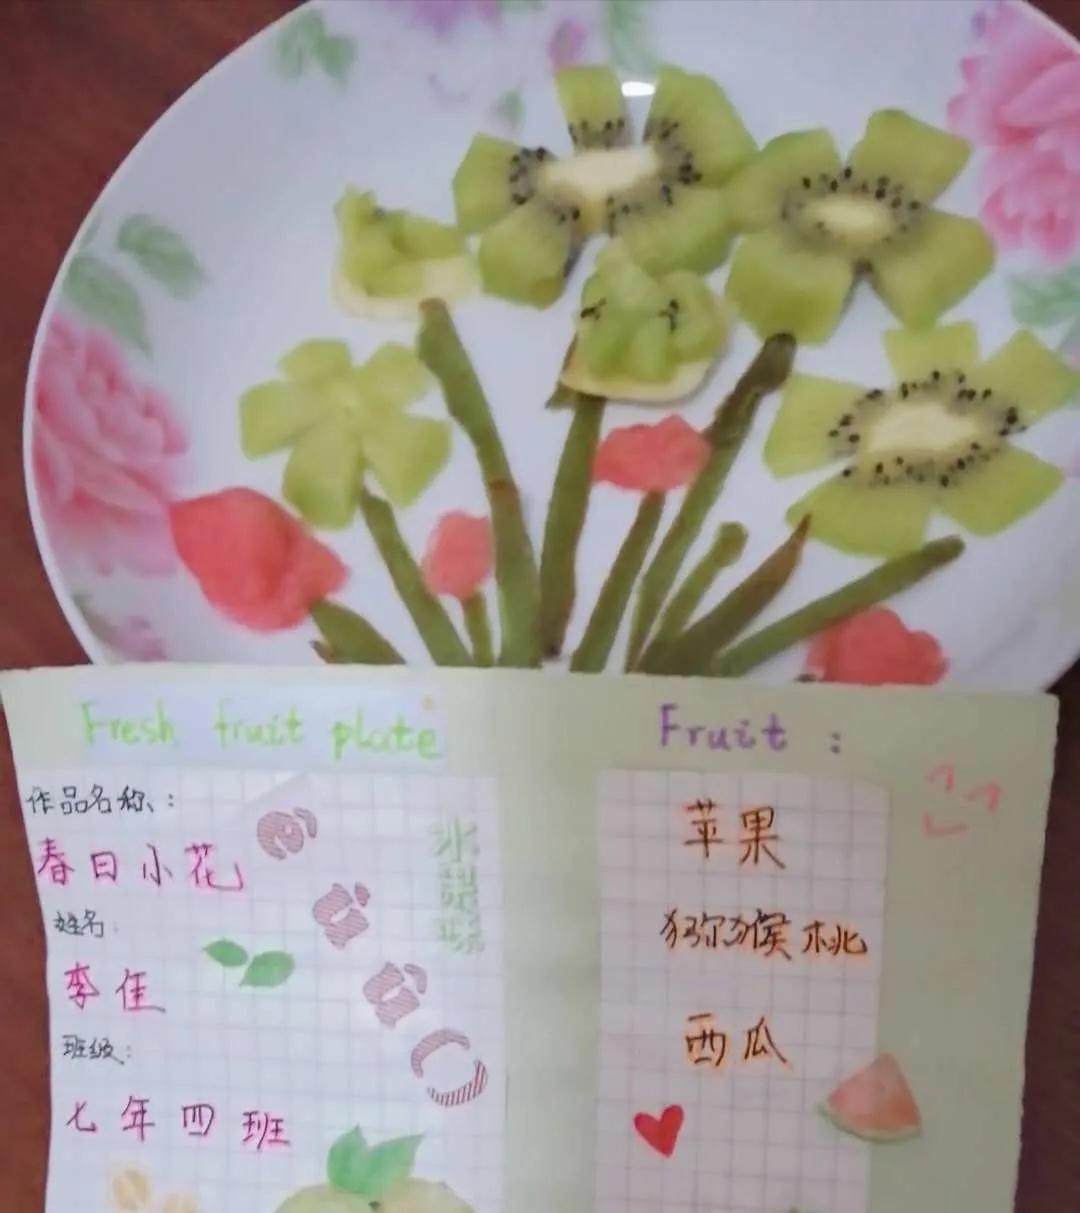 Fresh fruit plate
作品名称:
春日小花
姓名:
李佳
班级:
七年四班
Fruit :
苹果
猕猴桃
西瓜